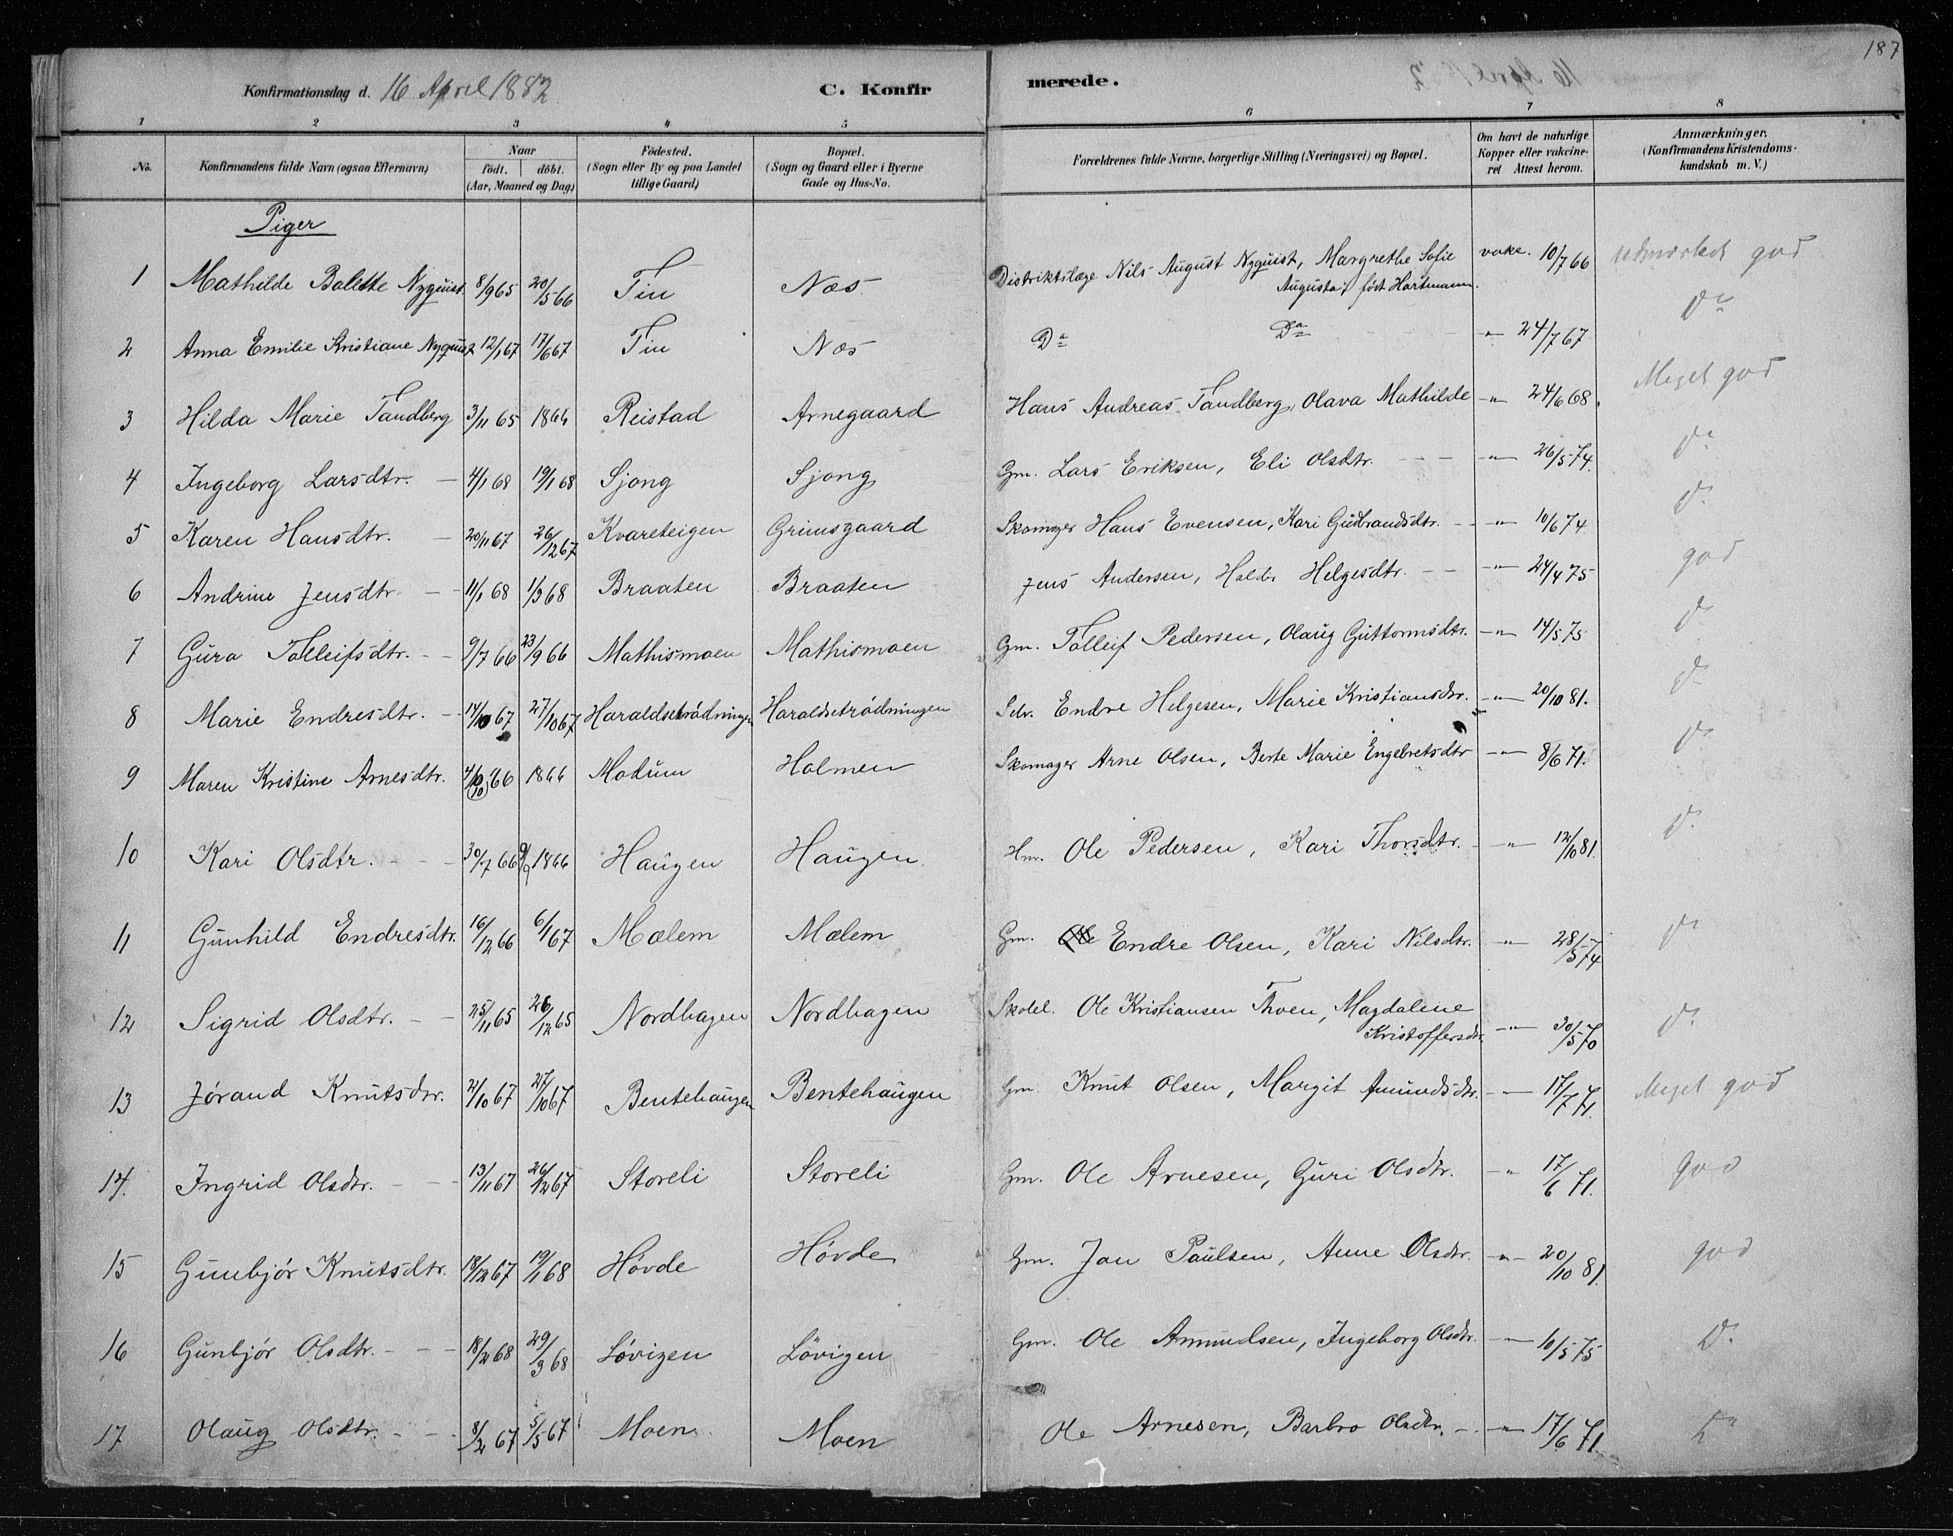 187
Konfirmationsdag d. 16 April 1882 C. Konfirmerede.
1 2 3 4 5 6 7 8
No. Konfirmandens fulde Navn (ogsaa Efternavn) Naar födt. döbt. (Aar, Maaned og Dag) Födested. (Sogn eller By og paa Landet tillige Gaard) Bopæl. (Sogn og Gaard eller i Byerne Gade og Hus-No. Forældrenes fulde Navne, borgerlige Stilling (Næringsvei) og Bopæl. Om havt de naturlige Kopper eller vakcineret Attest herom. Anmærkninger. (Konfirmandens Kristendomskundskab m. V.)
Piger
1 Mathilde Bolette Nyquist 8/9 65 20/5 66 Tin Næs Distriktslæge Nils August Nyquist, Margrethe Sofie Augusta, født Hartmann. vakc. 10/7 66 udmærket god
2 Anna Emilie Kristiane Nyquist 12/1 67 17/6 67 Tin Næs Do Do " 24/7 67 Do
3 Hilda Marie Tandberg 3/11 65 1866 Reistad Arnegaard Hans Andreas Tandberg, Olava Mathilde " 24/6 68. Meget god
4 Ingeborg Larsdtr. 4/1 68 19/1 68 Sjong Sjong Gm. Lars Eriksen, Eli Olsdtr. " 26/5 74. Do
5 Karen Hansdtr. 20/11 67 26/12 67 Kvareteigen Grimsgaard Skomager Hans Evensen, Kari Gudbrandsdtr. " 10/6 74 Do
6 Andrine Jensdtr. 11/1 68 1/3 68 Braaten Braaten Jens Andersen, Helgesdtr. " 24/4 75 god
7 Gura Tolleifsdtr. 9/7 66 23/9 66 Mathismoen Mathismoen Gm. Tolleif Pedersen, Olaug Guttormsdtr. " 14/5 75 Do
8 Marie Endresdtr. 14/10 67 27/10 67 Haraldsetrödningen Haraldsetrödningen Selv. Endre Helgesen, Marie Kristiansdtr. " 20/10 81. Do
9 Maren Kristine Arnesdtr. 4/10 66 (10) 1866 Modum Holmen Skomager Arne Olsen, Berte Marie Engebretsdtr " 8/6 71. Do
10 Kari Olsdtr. 30/7 66 9/9 1866 Haugen Haugen Hm. Ole Pedersen, Kari Thorsdtr. " 12/10 81. Do
11 Gunhild Endresdtr. 16/12 66 6/1 67 Mælem Mælem Gm. Endre Olsen, Kari Nilsdtr. " 28/5 74 Do
12 Sigrid Olsdtr. 25/11 65 26/12 65 Nordhagen Nordhagen Skolel. Ole Kristiansen Thoen, Magdalene Kristoffersdtr. " 30/5 70 Do
13 Jörand Knutsdtr. 2/10 67 27/10 67 Bentehaugen Bentehaugen Gm. Knut Olsen, Margit Amundsdtr. " 17/7 71. Meget god
14. Ingrid Olsdtr. 13/11 67 26/12 67 Storeli Storeli Gm. Ole Arnesen, Guri Olsdtr. " 17/6 71. god
15 Gunbjör Knutsdtr. 18/12 67 19/1 68 Hövde Hövde Gm. Jon Paulsen, Anne Olsdtr. " 20/10 81. god
16 Gunbjör Olsdtr. 18/2 68 29/3 68 Lövigen Lövigen Gm. Ole Amundsen, Ingeborg Olsdtr. " 10/5 75 Do
17 Olaug Olsdtr. 8/2 67 5/5 67 Moen Moen Ole Arnesen, Barbro Olsdtr. " 17/6 71. Do